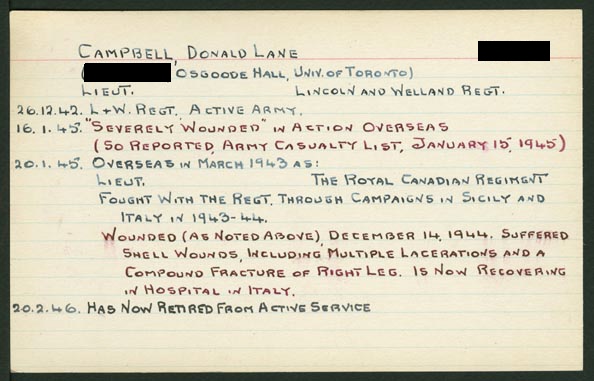 CAMPBELL, DONALD LANE
( OSGOODE HALL, UNIV. OF TORONTO)
LIEUT. LINCOLN AND WELLAND REGT.
26.12.42. L & W. REGT., ACTIVE ARMY.
16.1.45. "SEVERELY WOUNDED" IN ACTION OVERSEAS
(SO REPORTED, ARMY CASUALTY LIST, JANUARY 15, 1945)
20.1.45. OVERSEAS IN MARCH 1943 AS:
LIEUT. THE ROYAL CANADIAN REGIMENT
FOUGHT WITH THE REGT. THROUGH CAMPAIGNS IN SICILY AND
ITALY IN 1943-44.
WOUNDED (AS NOTED ABOVE), DECEMBER 14, 1944. SUFFERED
SHELL WOUNDS, INCLUDING MULTIPLE LACERATIONS AND A
COMPOUND FRACTURE OF RIGHT LEG. IS NOW RECOVERING
IN HOSPITAL IN ITALY.
20.2.46. HAS NOW RETIRED FROM ACTIVE SERVICE